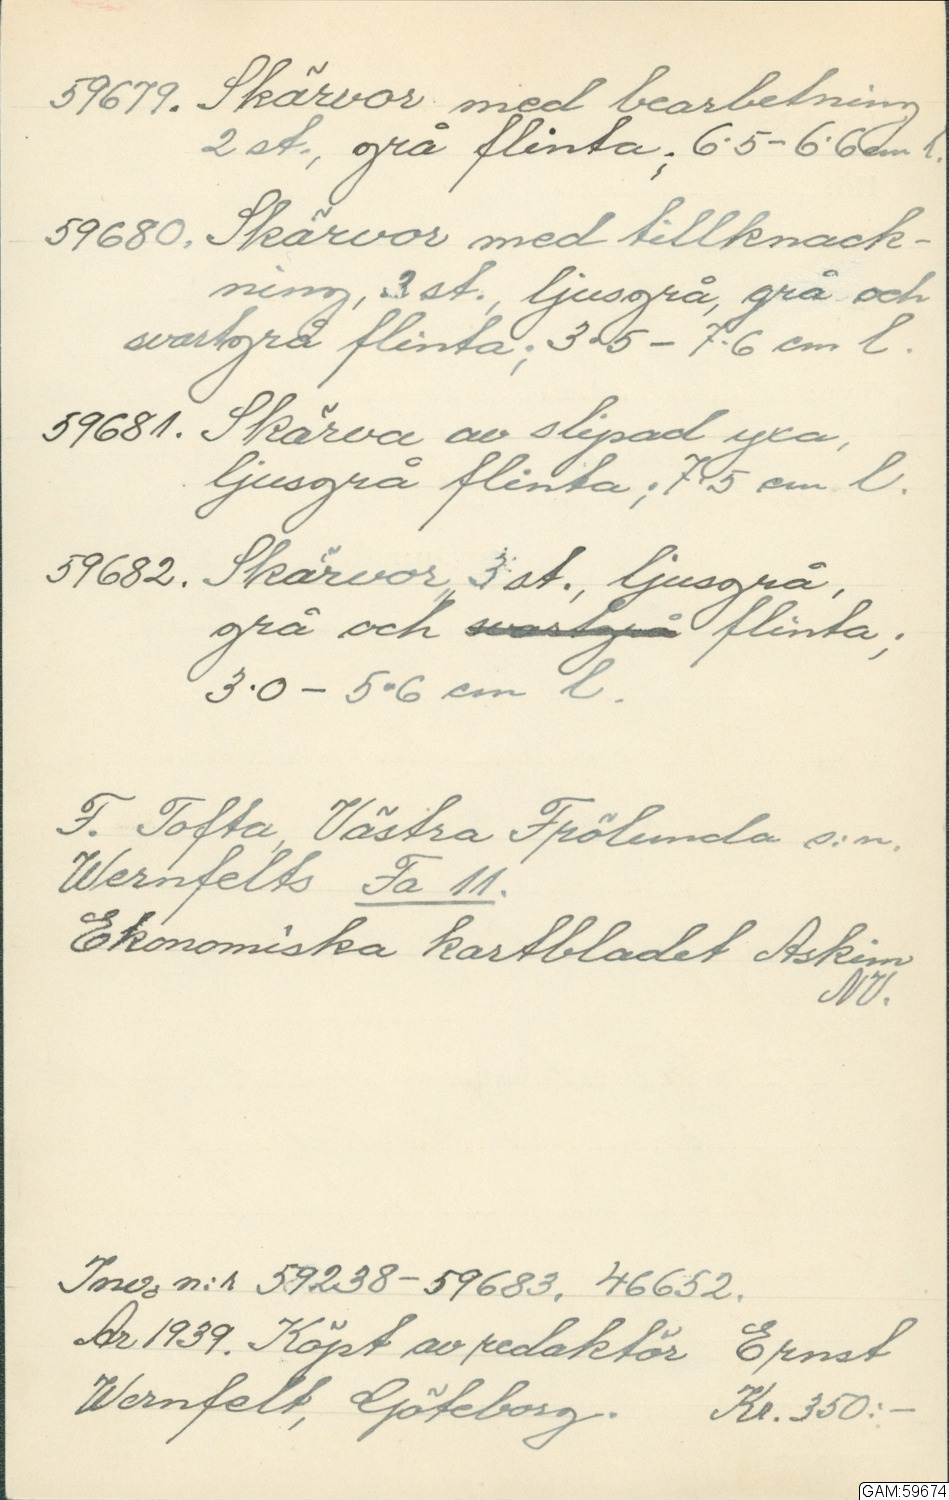 59679. Skärvor med bearbetning
2 st., grå flinta; 6.5-6.6 cm l.
59680. Skärvor med tillknack-
ning, 3 st., ljusgrå, grå och
svartgrå flinta; 3.5 - 7.6 cm l.
59681. Skärva av slipad yxa,
ljusgrå flinta; 7.5 cm l.
59682. Skärvor, 3 st., ljusgrå,
grå och svartgrå flinta;
3.0 - 5.6 cm l.
F. Tofta, Västra Frölunda s:n.
Wernfelts Fa 11.
Ekonomiska kartbladet Askim
NV.
Inv. n:r 59238-59683, 46652.
År 1939. Köpt av redaktör Ernst
Wernfelt, Göteborg. Kr. 350:-
GAM:59674